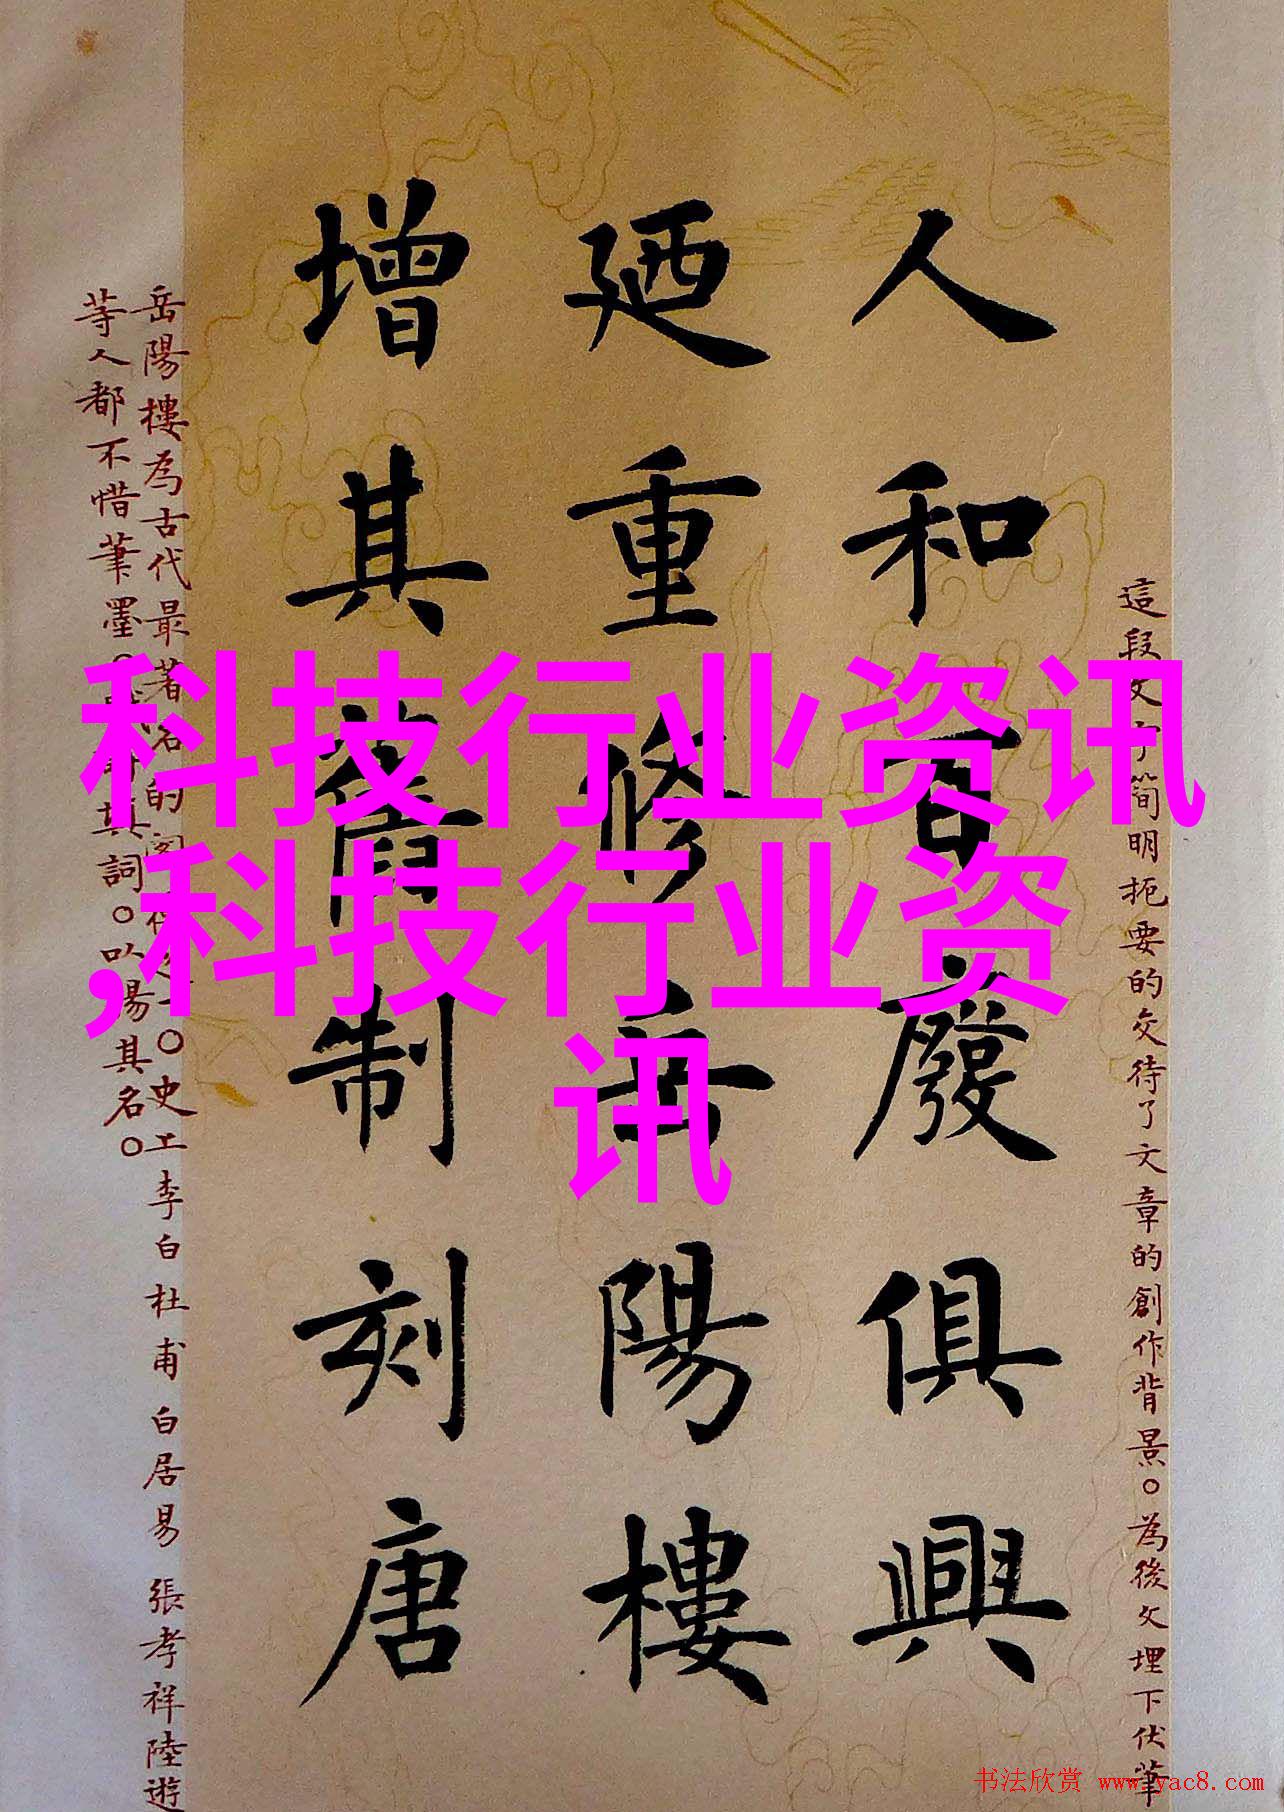 這段文字簡明扼要的交待了文章的創作背景。為後文埋下伏筆
人和百廢俱興
廼重修岳陽樓
增其舊制刻唐
岳陽樓為古代最著名的阁 一。史工李白杜甫 白居易 張孝祥陸遊
等人都不惜筆墨。其詞。以揚其名。
科技行业资讯
,科技行业资
讯
书法欣赏 www.yac8.com